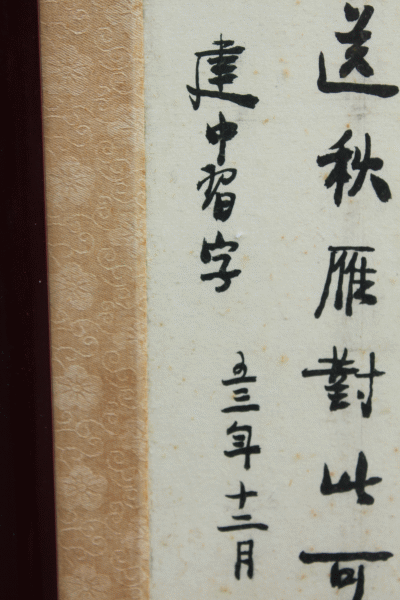 送秋雁對此可
建中習字
五三年十二月